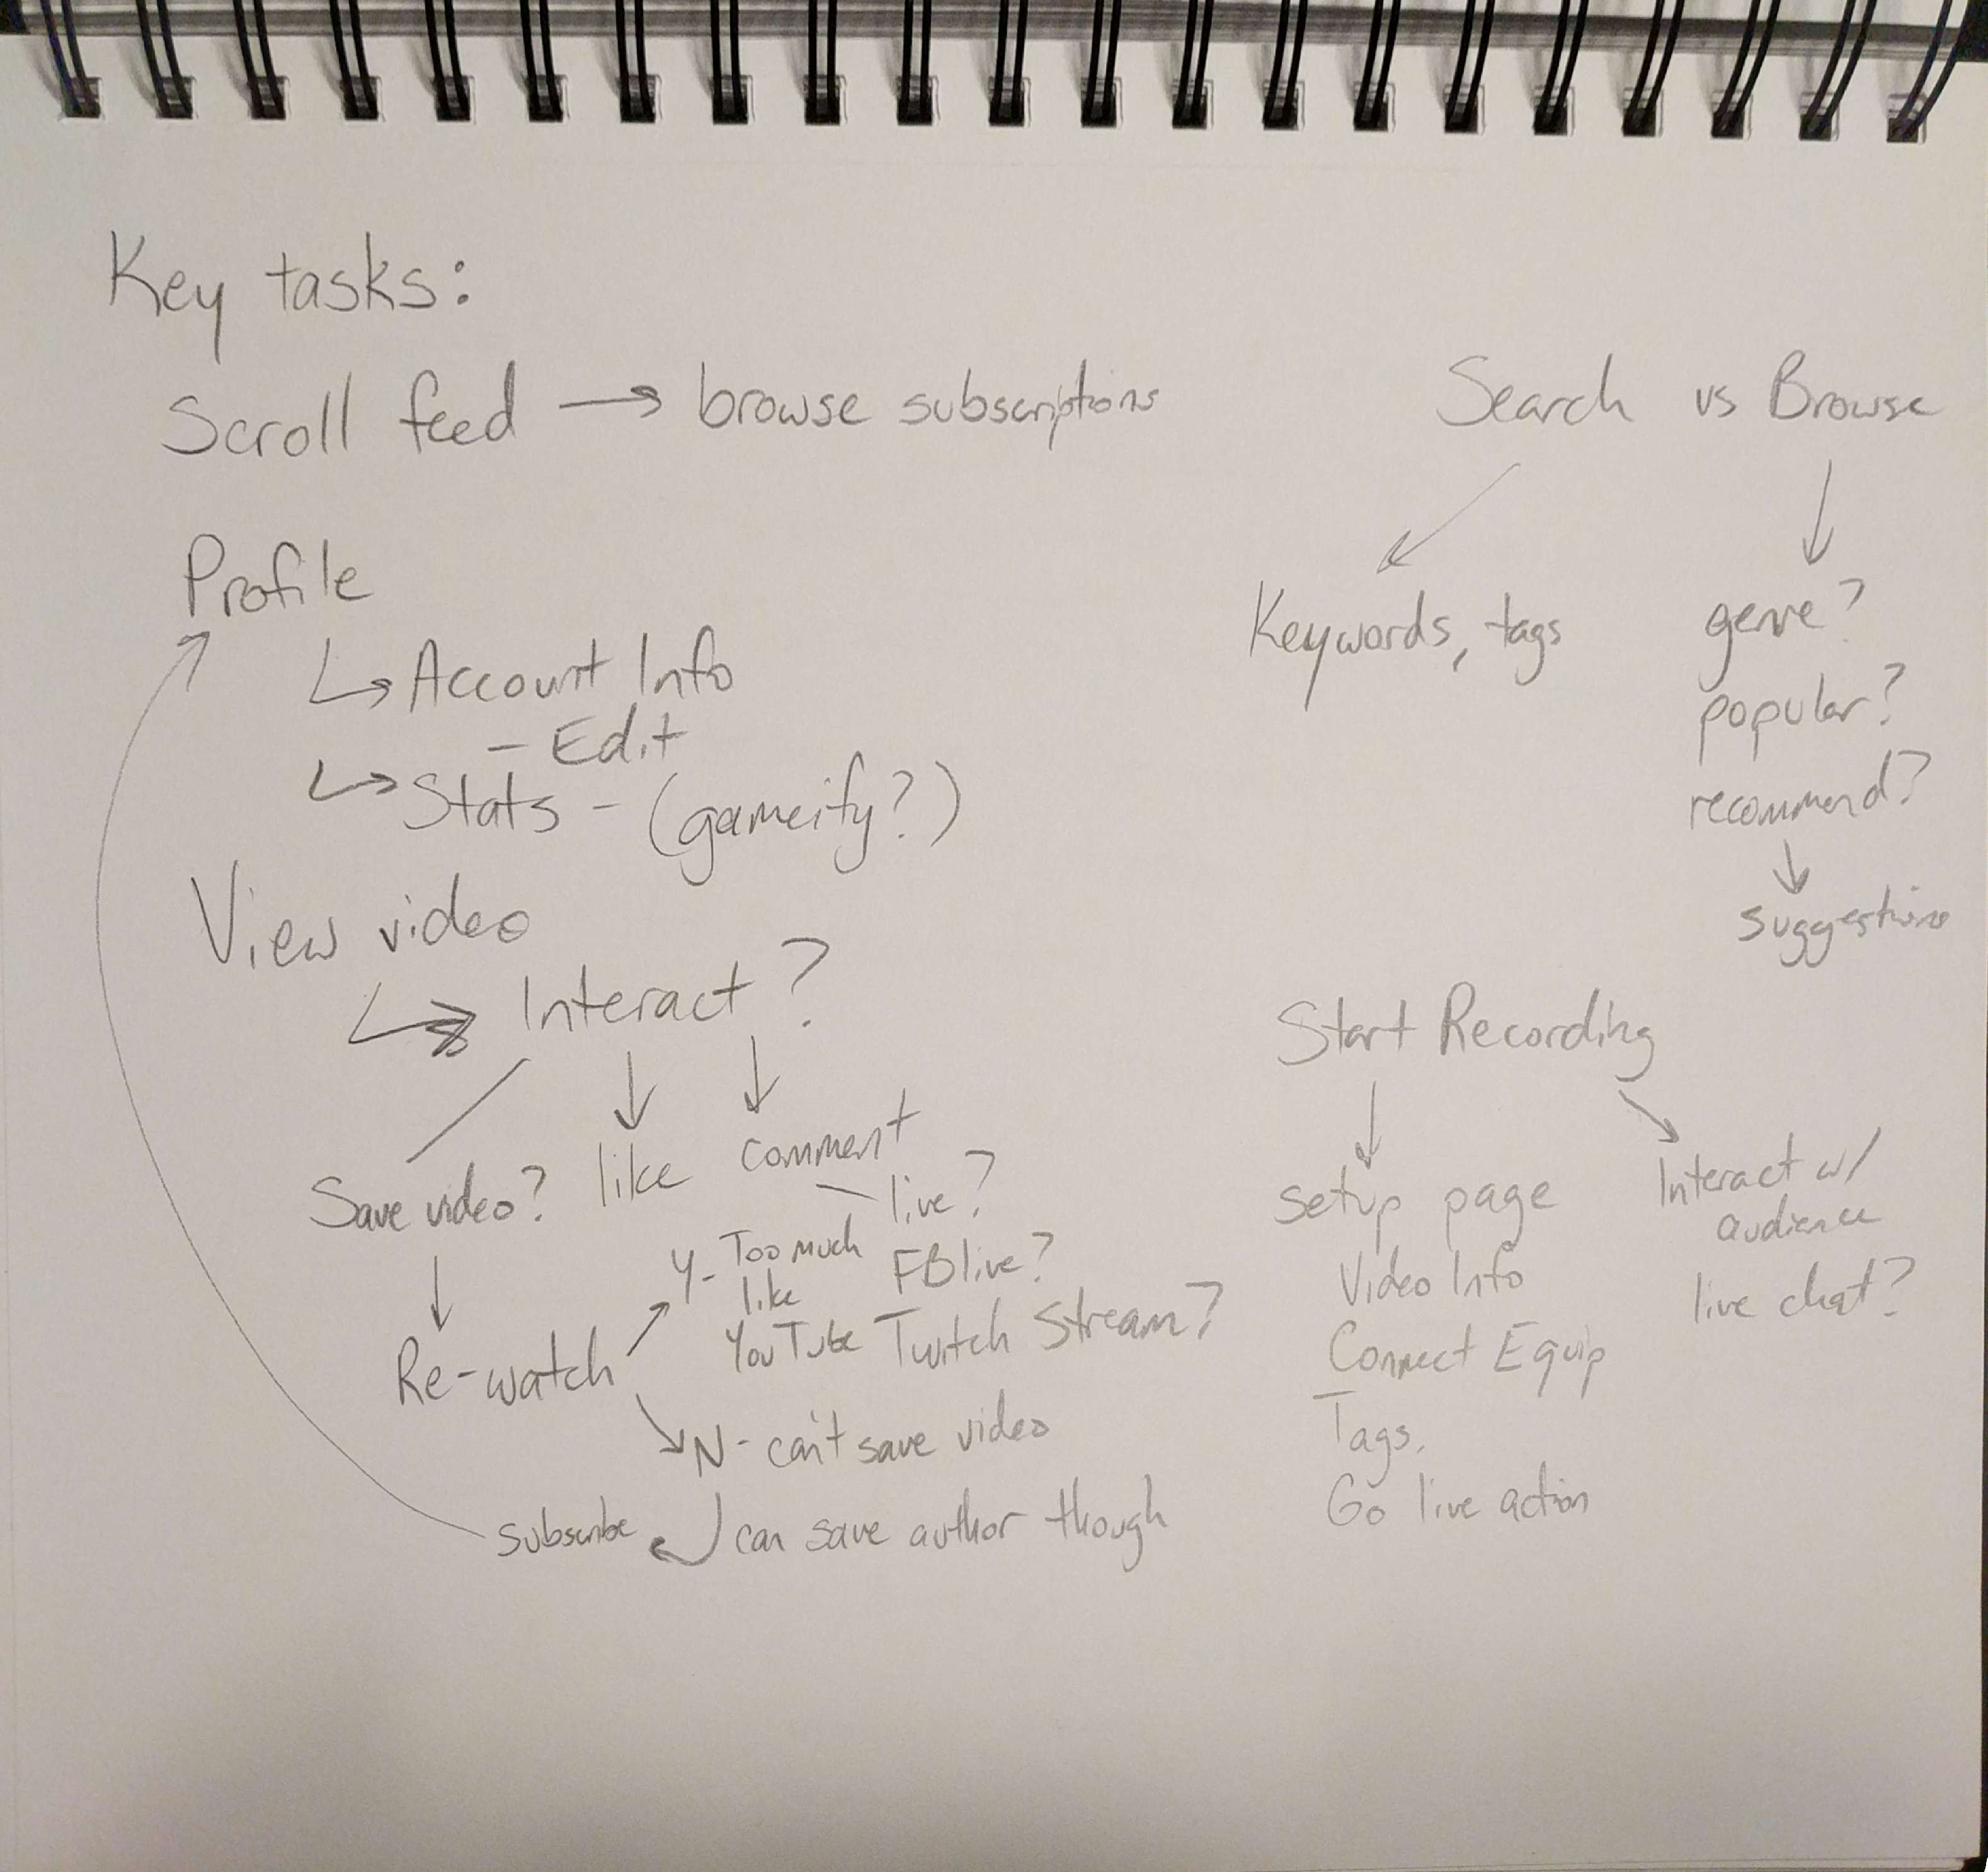 Key tasks:
Scroll feed → browse subscriptions
Profile
↳ Account Info
- Edit
↳ Stats - (gameify?)
View video
↳ Interact?
Save video? like comment
- live?
FB live?
Twitch Stream?
Re-watch
Y- Too much
like
YouTube
N- can't save video
can save author though
Subscribe
Search vs Browse
Keywords, tags
genre?
popular?
recommend?
suggestions
Start Recording
setup page
Video Info
Connect Equip
Tags.
Go live action
Interact w/
audience
live chat?